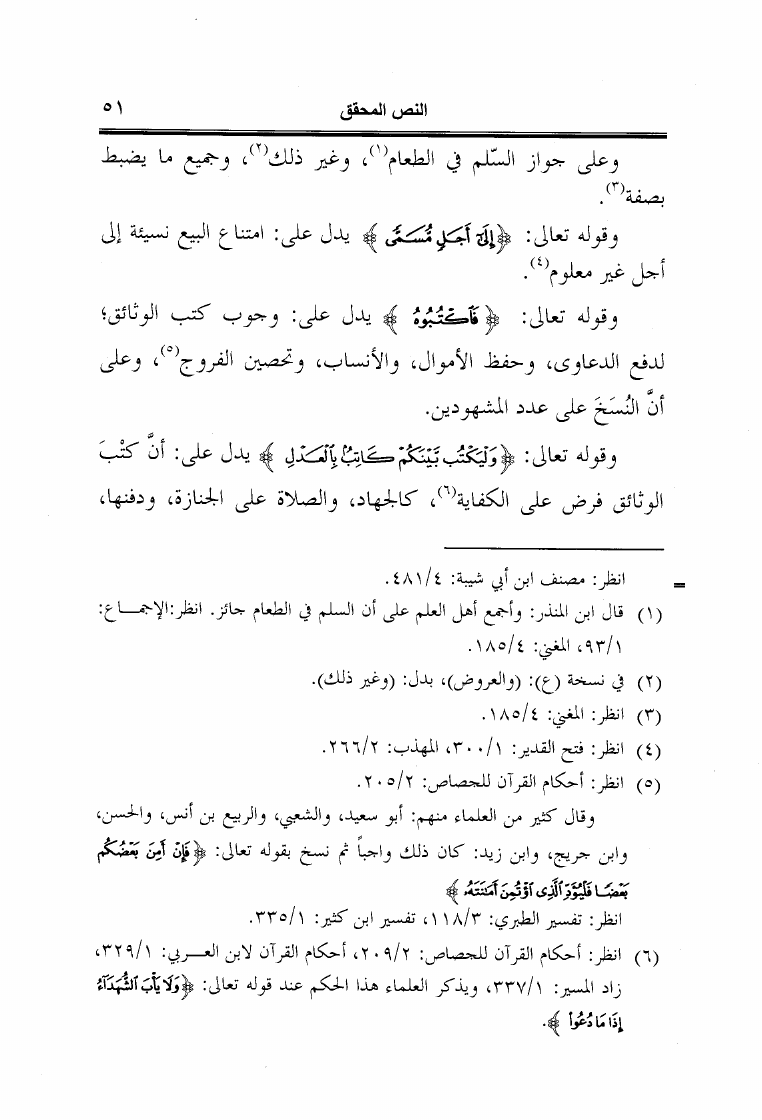 النص المحقق ٥١
وعلى جواز السّلم في الطعام(١)، وغير ذلك(٢)، وجميع ما يضبط
بصفة(٣).
وقوله تعالى: ﴿إِلَىٰٓ أَجَلٍ مُّسَمًّى﴾ يدل على: امتناع البيع نسيئة إلى
أجل غير معلوم(٤).
وقوله تعالى: ﴿فَٱكْتُبُوهُ﴾ يدل على: وجوب كتب الوثائق؛
لدفع الدعاوى، وحفظ الأموال، والأنساب، وتحصين الفروج(٥)، وعلى
أنَّ النُسَخَ على عدد المشهودين.
وقوله تعالى: ﴿وَلْيَكْتُب بَّيْنَكُمْ كَاتِبٌۢ بِٱلْعَدْلِ﴾ يدل على: أنَّ كتْبَ
الوثائق فرض على الكفاية(٦)، كالجهاد، والصلاة على الجنازة، ودفنها،
= انظر: مصنف ابن أبي شيبة: ٤٨١/٤.
(١) قال ابن المنذر: وأجمع أهل العلم على أن السلم في الطعام جائز. انظر:الإجمـــاع:
٩٣/١، المغني: ١٨٥/٤.
(٢) في نسخة (ع): (والعروض)، بدل: (وغير ذلك).
(٣) انظر: المغني: ١٨٥/٤.
(٤) انظر: فتح القدير: ٣٠٠/١، المهذب: ٢٦٦/٢.
(٥) انظر: أحكام القرآن للجصاص: ٢٠٥/٢.
وقال كثير من العلماء منهم: أبو سعيد، والشعبي، والربيع بن أنس، والحسن،
وابن جريج، وابن زيد: كان ذلك واجباً ثم نسخ بقوله تعالى: ﴿فَإِنْ أَمِنَ بَعْضُكُم
بَعْضًا فَلْيُؤَدِّ ٱلَّذِى ٱؤْتُمِنَ أَمَٰنَتَهُۥ﴾
انظر: تفسير الطبري: ١١٨/٣، تفسير ابن كثير: ٣٣٥/١.
(٦) انظر: أحكام القرآن للجصاص: ٢٠٩/٢، أحكام القرآن لابن العـــربي: ٣٢٩/١،
زاد المسير: ٣٣٧/١، ويذكر العلماء هذا الحكم عند قوله تعالى: ﴿وَلَا يَأْبَ ٱلشُّهَدَآءُ
إِذَا مَا دُعُوا۟﴾.